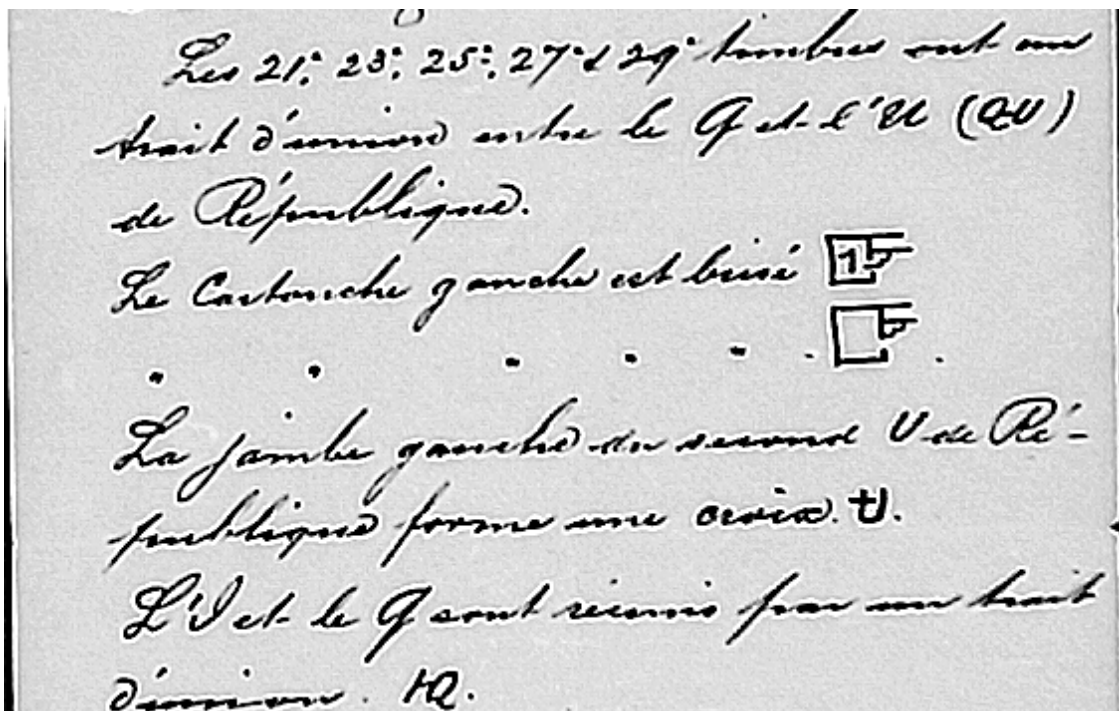 Les 21e, 23e, 25e, 27e & 29e timbres ont un
trait d'union entre le Q et l'U (Q-U)
de République.
Le Cartouche gauche est brisé 1
" " " " " .
La jambe gauche du second U de Ré-
publique forme une croix. U.
L'I et le Q sont réunis par un trait
d'union. I-Q.